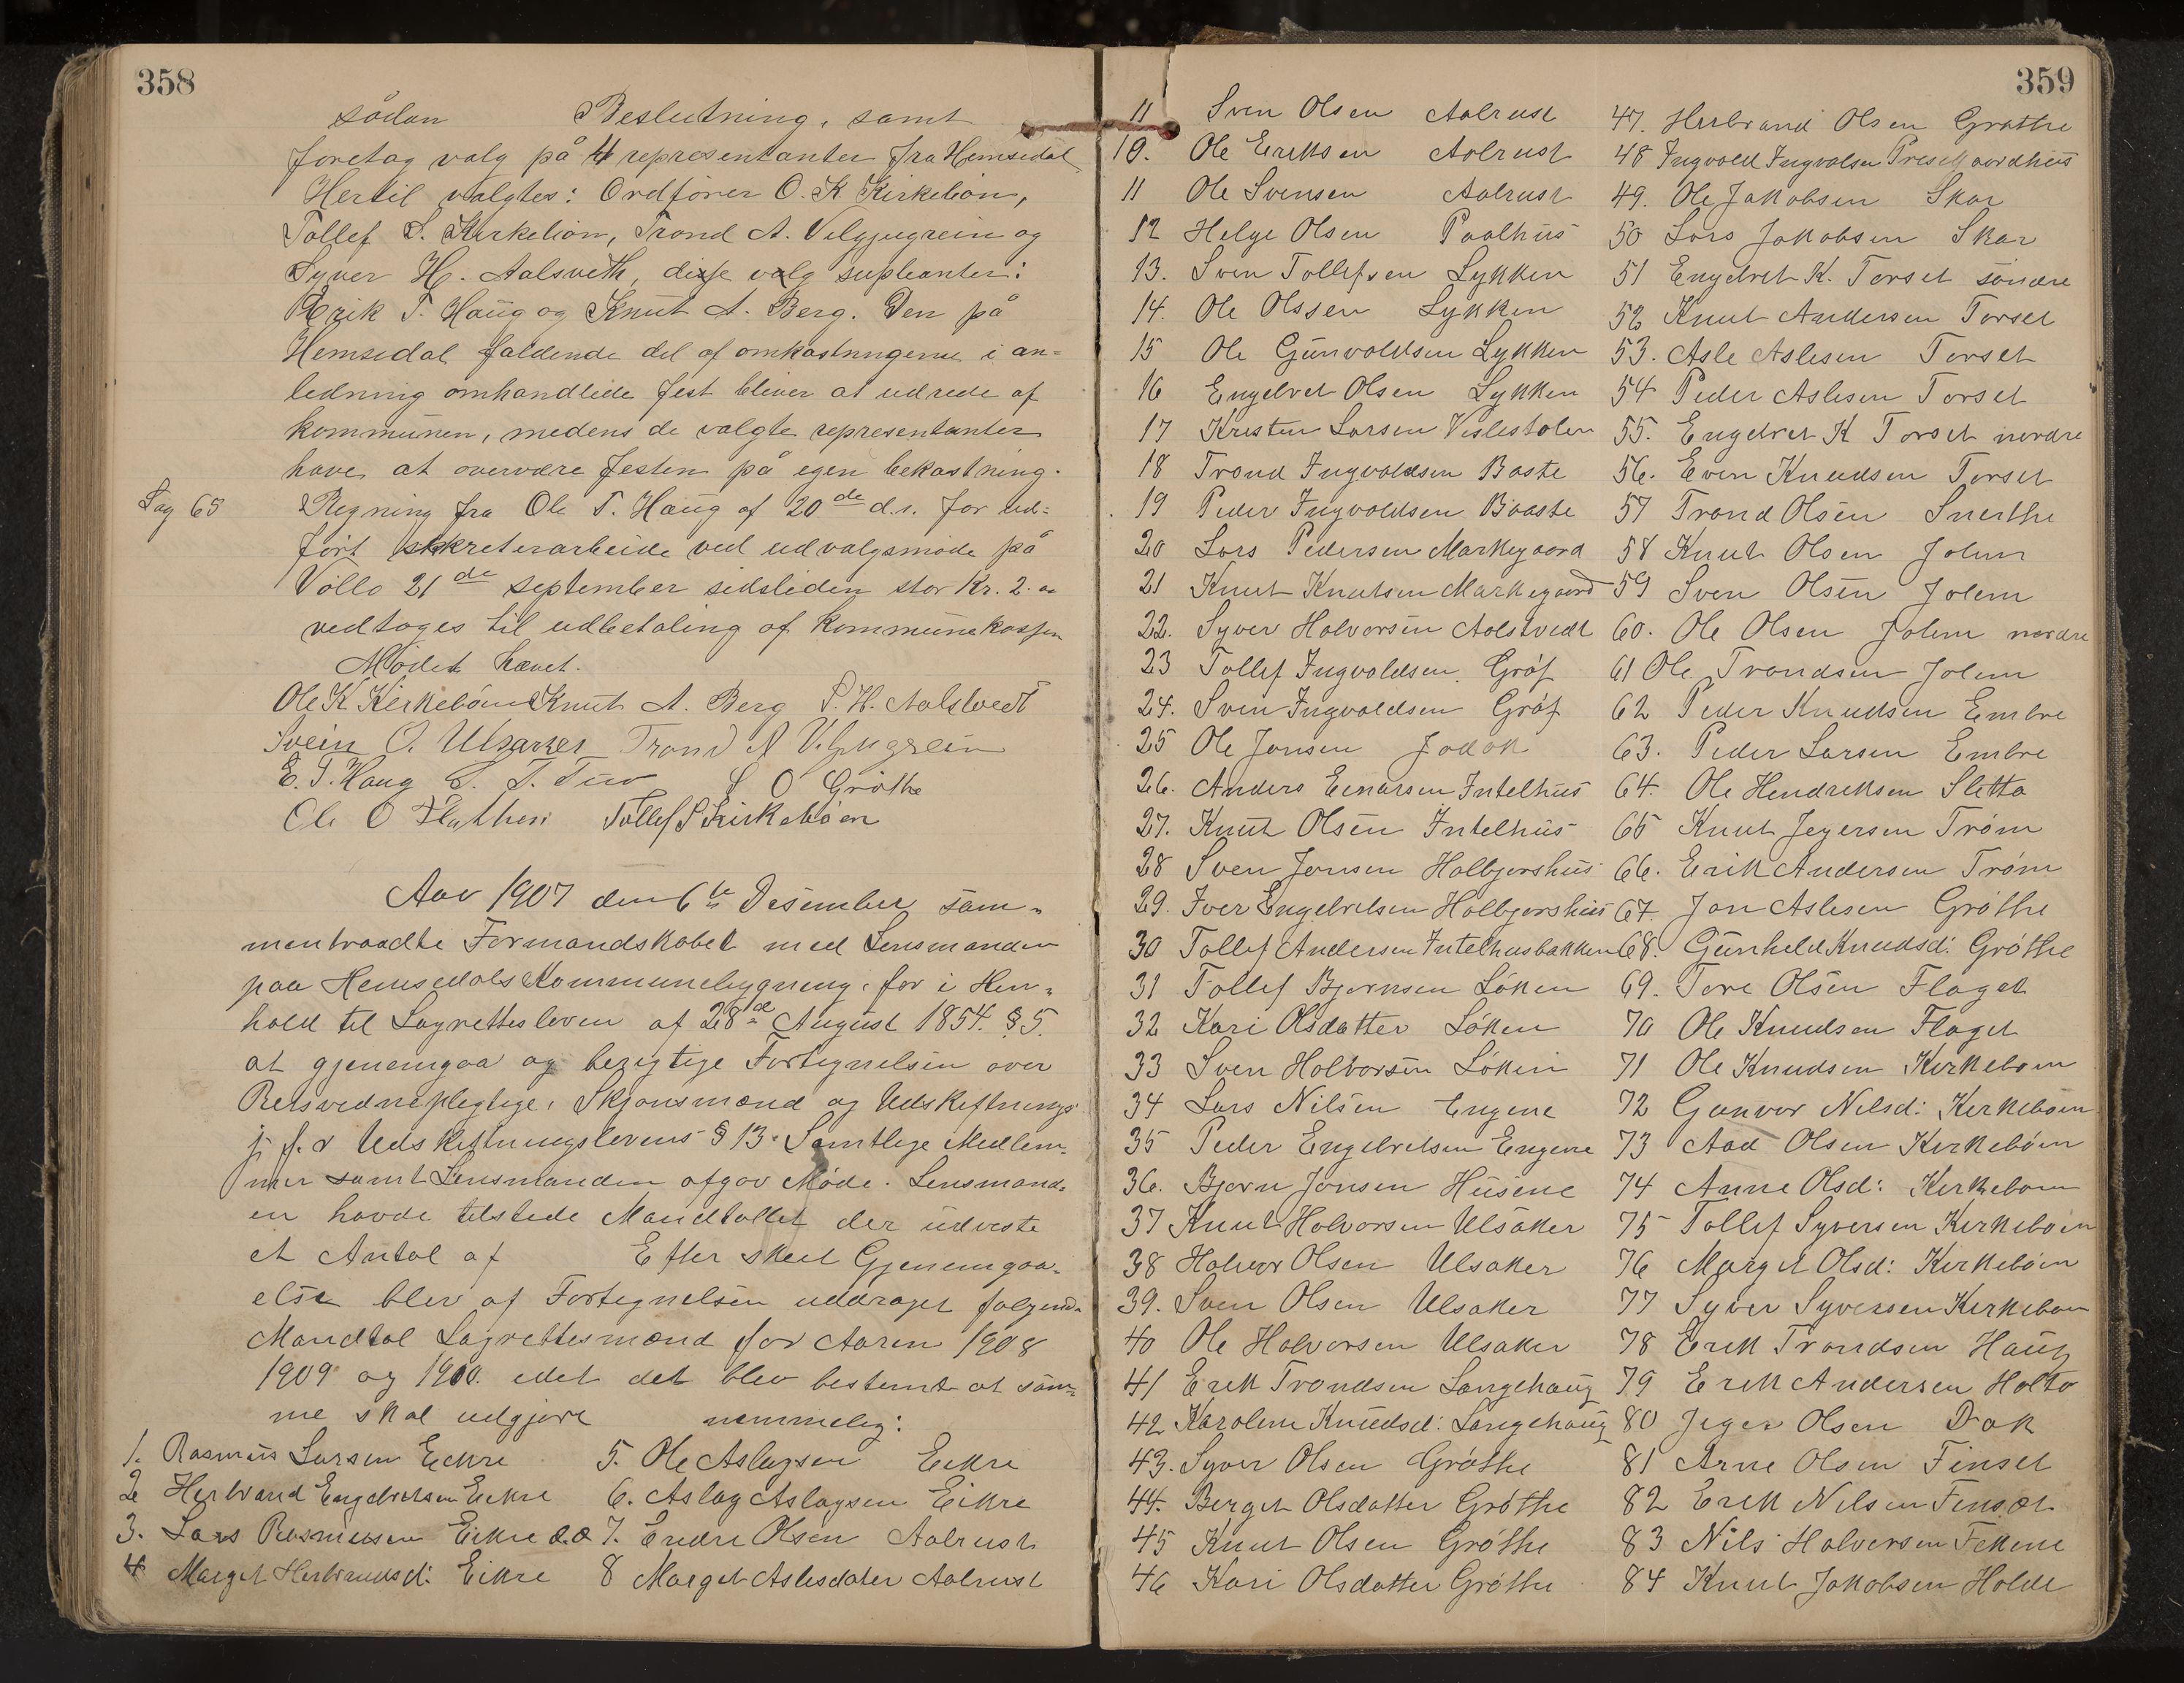 358
sådan Beslutning, samt
foretag valg på 4 representanter fra Hemsedal
Hertil valgtes: Ordfører O. K. Kirkebøn,
Tollef S. Kirkebøn, Trond A. Velgjugrein og
Syver H. Aalsveth, disse valg supleanter:
Erik T. Haug og Knut A. Berg. Den på
Hemsedal faldende del af omkastningerne i an=
ledning omhandlede fest bliver at udrede af
kommunen, medens de valgte representanter
have at overvære festen på egen bekastning.
Sag 65 Regning fra Ole T. Haug af 20de d.s. for ud=
ført sekreterarbeide ved udvalgsmøde på
Vøllo 21de september sidsliden stor Kr. 2.
vedtoges til udbetaling af kommunekassen
Mødet hævet.
Ole K Kirkebøen Knut A. Berg S. H. Aalstvedt
Svein O. Ulsaker Trond A Velgjugrein
E. T. Haug S. T. Tuv S O Grøthe
Ole O Flathen Tollef S Kirkebøen
Aar 1907 den 6te Desember sam=
mentraadte Formandskabet med Lensmanden
paa Hemsedals Kommunebygning, for i Hen=
hold til Lagrettesloven af 28de August 1854. § 5.
at gjenemgaa og bezigtige Fortegnelsen over
Retsvidnepligtige, Skjønsmænd og Udskiftnings
jf. Udskiftningslovens § 13. Samtlige Medlem=
mer samt Lensmanden afgav Møde. Lensmand=
en havde tilstede Mandtallet der udviste
et Antal af Efter skeet Gjenemgaa=
else blev af Fortegnelsen uddraget følgende
Mandtal Lagrettesmænd for Aaren 1908
1909 og 1910. idet det blev bestemt at sam=
me skal udgjøre nemmelig:
1. Rasmus Larsen Eikre 5. Ole Aslagsen Eikre
2 Herbrand Engebretsen Eikre 6. Aslag Aslagsen Eikre
3. Lars Rasmusen Eikre d.æ 7. Endre Olsen Aalrust
4 Margit Herbrandsd: Eikre 8 Margit Aslesdater Aalrust
359
11 Sven Olsen Aalrust
10. Ole Eriksen Aalrust
11 Ole Svensen Aalrust
12 Helge Olsen Paalhus
13. Sven Tollefsen Lykken
14. Ole Olssen Lykken
15 Ole Gunvoldsen Lykken
16 Engebret Olsen Lykken
17 Kristen Larsen Veslestølen
18 Trond Ingvoldsen Baste
19 Peder Ingvoldsen Baaste
20 Lars Pedersen Markegaard
21 Knut Knutsen Markegaard
22. Syver Halvorsen Aalstvedt
23 Tollef Ingvoldsen Grøf
24. Sven Ingvoldsen Grøf
25 Ole Jonsen Jodok
26. Anders Einarsen Intelhus
27. Knut Olsen Intelhus
28 Sven Jonsen Holbjørshus
29. Iver Engebretsen Holbjørshus
30 Tollef Andersen Intelhusbakken
31 Tollef Bjørnsen Løken
32 Kari Olsdatter Løken
33 Sven Halvorsen Løken
34 Lars Nilsen Engene
35 Peder Engebretsen Engene
36. Bjørn Jonsen Husene
37 Knut Halvorsen Ulsaker
38 Halvor Olsen Ulsaker
39. Sven Olsen Ulsaker
40 Ole Halvorsen Ulsaker
41 Erik Trondsen Langehaug
42 Karoline Knudsd: Langehaug
43. Syver Olsen Grøthe
44. Berget Olsdatter Grøthe
45 Knut Olsen Grøthe
46 Kari Olsdatter Grøthe
47. Herbrand Olsen Grøthe
48 Ingvold Ingvolsen Prestgaardhus
49. Ole Jakobsen Skar
50 Lars Jakobsen Skar
51 Engebret K. Torset søndre
52 Knut Andersen Torset
53. Asle Aslesen Torset
54 Peder Aslesen Torset
55. Engebret K Torset nordre
56. Even Knudsen Torset
57 Trond Olsen Snerthe
58 Knut Olsen Jolem
59 Sven Olsen Jolem
60. Ole Olsen Jolem nordre
61 Ole Trondsen Jolem
62 Peder Knudsen Embre
63. Peder Larsen Embre
64. Ole Hendriksen Sletta
65 Knut Jegersen Trøm
66. Erik Andersen Trøm
67. Jon Aslesen Grøthe
68. Gunhild Knudsd: Grøthe
69. Tore Olsen Flaget
70 Ole Knudsen Flaget
71 Ole Knudsen Kirkebøen
72 Gunvor Nilsd: Kirkebøen
73 Aad Olsen Kirkebøen
74 Anne Olsd: Kirkebøen
75 Tollef Syversen Kirkebøen
76 Margit Olsd: Kirkebøen
77 Syver Syversen Kirkebøen
78 Erik Trondsen Haug
79 Erik Andersen Holto
80 Jeger Olsen Dok
81 Arne Olsen Finset
82 Erik Nilsen Finset
83 Nils Halvorsen Fekene
84 Knut Jakobsen Holde